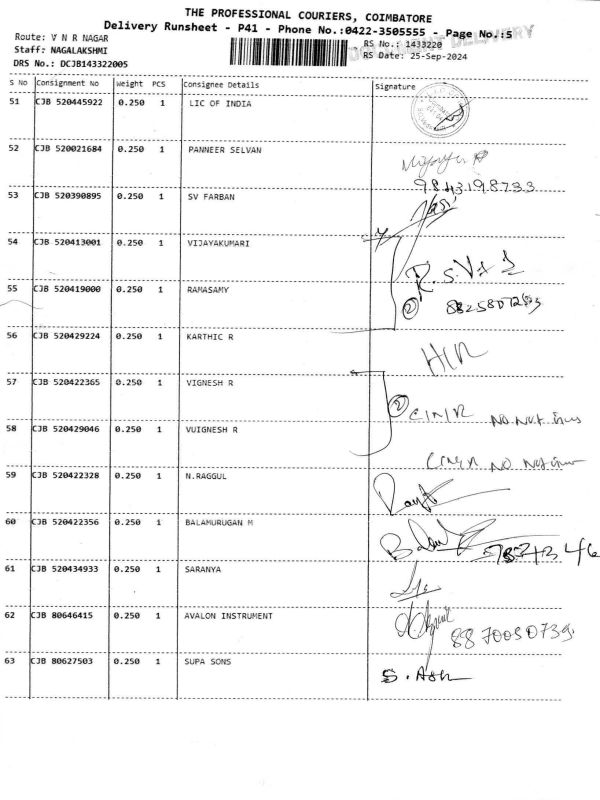 THE PROFESSIONAL COURIERS, COIMBATORE
Delivery Runsheet - P41 - Phone No.:0422-3505555 - Page No.:5
Route: V N R NAGAR
Staff: NAGALAKSHMI
DRS No.: DCJB143322005
RS No.: 1433220
RS Date: 25-Sep-2024
S No Consignment No Weight PCS Consignee Details Signature
51 CJB 520445922 0.250 1 LIC OF INDIA
52 CJB 520021684 0.250 1 PANNEER SELVAN
9843198733
53 CJB 520390895 0.250 1 SV FARBAN
54 CJB 520413001 0.250 1 VIJAYAKUMARI
55 CJB 520419000 0.250 1 RAMASAMY
2
56 CJB 520429224 0.250 1 KARTHIC R
57 CJB 520422365 0.250 1 VIGNESH R
2
NO
58 CJB 520429046 0.250 1 VUIGNESH R
NO
59 CJB 520422328 0.250 1 N.RAGGUL
60 CJB 520422356 0.250 1 BALAMURUGAN M
61 CJB 520434933 0.250 1 SARANYA
62 CJB 80646415 0.250 1 AVALON INSTRUMENT
63 CJB 80627503 0.250 1 SUPA SONS
S. Ash